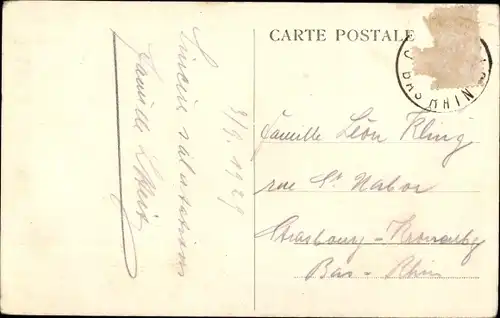 CARTE POSTALE
BAS RHIN
3/9. 1929
Sincère salutations
Famille
Famille Léon Kling
rue St Nabor
Strasbourg - Kronenbg
Bas - Rhin